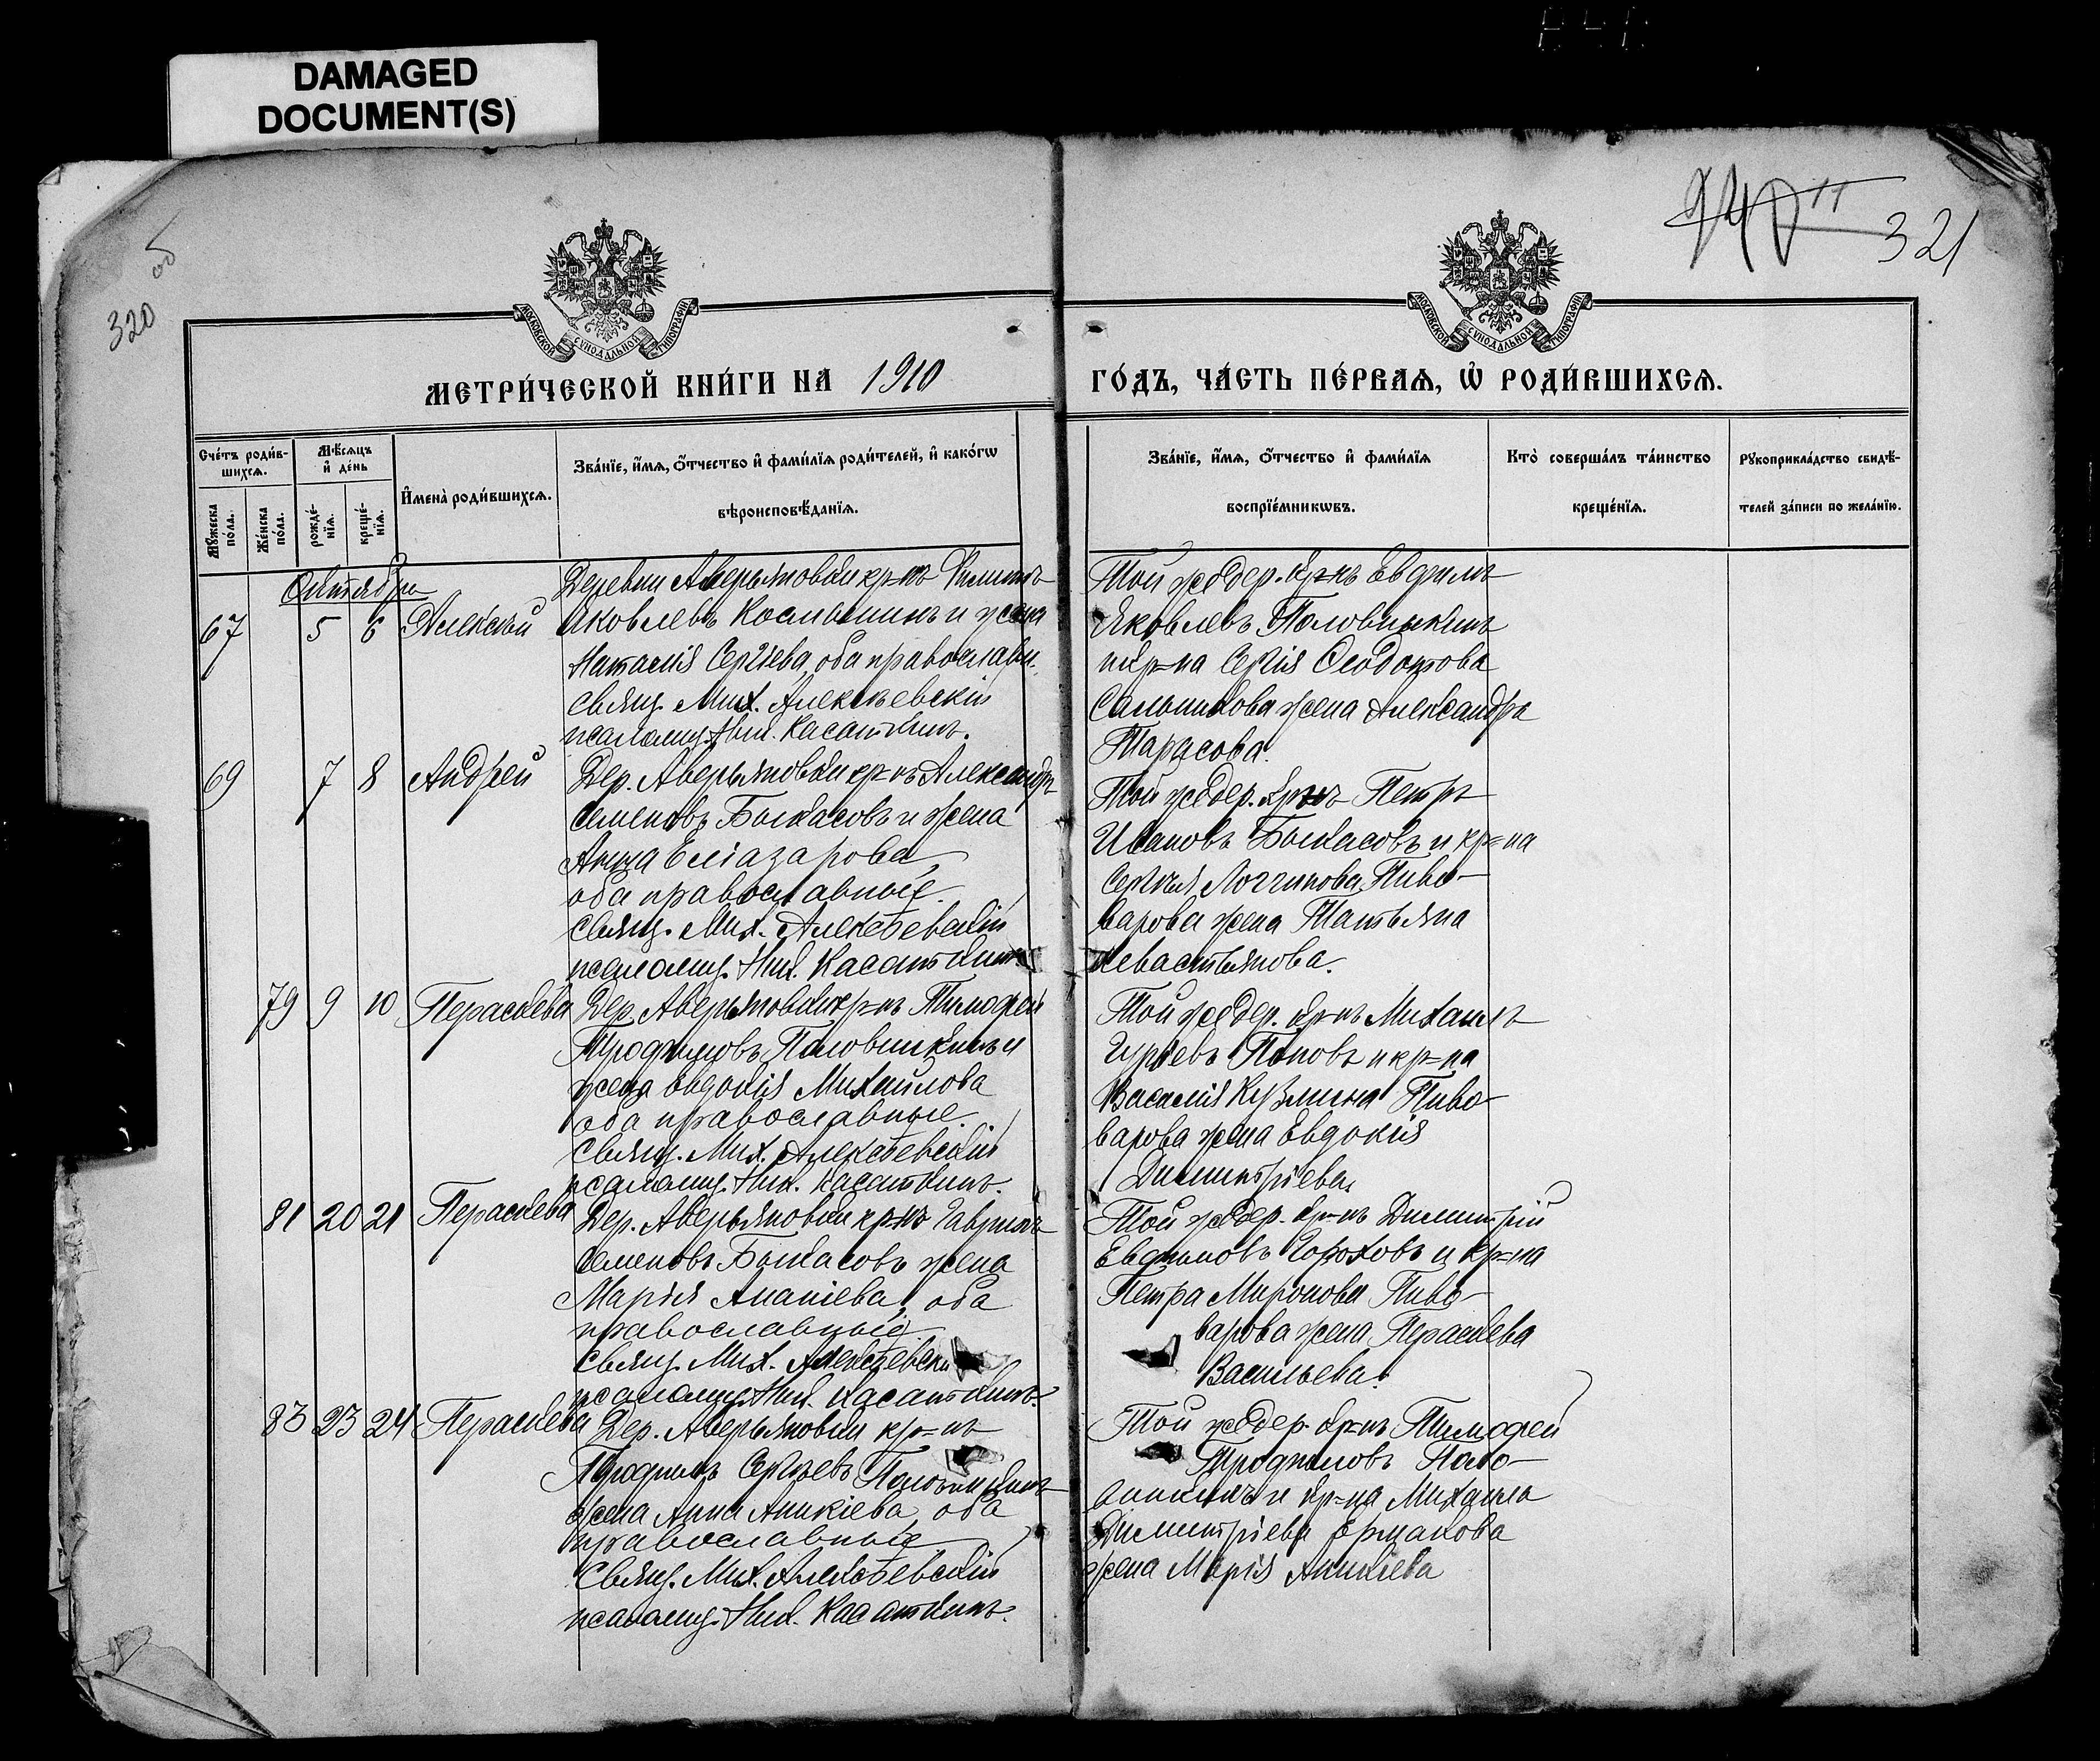 DAMAGED
DOCUMENT(S)
320 об
321
МОСКОВСКОЙ СѴНОДАЛЬНОЙ ТИПОГРАФІИ
МОСКОВСКОЙ СѴНОДАЛЬНОЙ ТИПОГРАФІИ
МЕТРИ́ЧЕСКОЙ КНИ́ГИ НА 1910
ГО́ДЪ, ЧА́СТЬ ПЕ́РВАѦ, Ѡ РОДИ́ВШИХСѦ.
Сче́тъ роди́в-
шихсѧ.
Мꙋ́жеска по́ла.
Же́нска по́ла.
Мѣ́сѧцъ
и҆ де́нь
рожде́-
нїѧ.
креще́-
нїѧ.
И҆мена̀ роди́вшихсѧ.
Зва́нїе, и҆́мѧ, ѻ҆́тчество и҆ фами́лїѧ роди́телей, и҆ како́гѡ
вѣроисповѣ́данїѧ.
Зва́нїе, и҆́мѧ, ѻ҆́тчество и҆ фами́лїѧ
воспрїе́мникѡвъ.
Кто̀ соверша́лъ та́инство
креще́нїѧ.
Рꙋкоприкла́дство свидѣ́-
телей за́писи по жела́нїю.
Октября
67 5 6 Алексѣй
Деревни Аверьяновки кр=нъ Филиппъ
Яковлевъ Космынинъ и жена
Наталія Сергѣева, оба православн.
Свящ. Мих. Алексѣевскій
псаломщ. Ник. Касаткинъ.
Той же дер. кр=нъ Евфимъ
Яковлевъ Половинкинъ
и кр=на Сергія Ѳеодотова
Сальникова жена Александра
Тарасова.
69 7 8 Андрей
Дер. Аверьяновки кр=нъ Александръ
Семеновъ Быкасовъ и жена
Анна Еліазарова,
оба православные.
Свящ. Мих. Алексѣевскій
псаломщ. Ник. Касаткинъ
Той же дер. кр=нъ Петръ
Ивановъ Быкасовъ и кр=на
Сергія Логгинова Пиво-
варова жена Татьяна
Севастьянова.
79 9 10 Параскева
Дер. Аверьяновки кр=нъ Тимоѳей
Трофимовъ Половинкинъ и
жена Евдокія Михайлова
оба православные.
Свящ. Мих. Алексѣевскій
псаломщ. Ник. Касаткинъ.
Той же дер. кр=нъ Михаилъ
Гурьевъ Поповъ и кр=на
Василія Кузмина Пиво-
варова жена Евдокія
Димитріева.
81 20 21 Параскева
Дер. Аверьяновки кр=нъ Гавріилъ
Семеновъ Быкасовъ жена
Марія Ананіева, оба
православные.
Свящ. Мих. Алексѣевскі
псаломщ. Ник. Касаткинъ.
Той же дер. кр=нъ Димитрій
Евфимовъ Гороховъ и кр=на
Петра Миронова Пиво-
варова жена Параскева
Васильева.
83 23 24 Параскева
Дер. Аверьяновки кр=нъ
Трофимъ Сергѣевъ Половинкинъ
жена Анна Аникіева, оба
православные
Свящ. Мих. Алексѣевскій
псаломщ. Ник. Касаткинъ.
Той же дер. кр=нъ Тимоѳей
Трофимовъ Поло-
винкинъ и кр=на Михаила
Димитріева Ермакова
жена Марія Аникіева